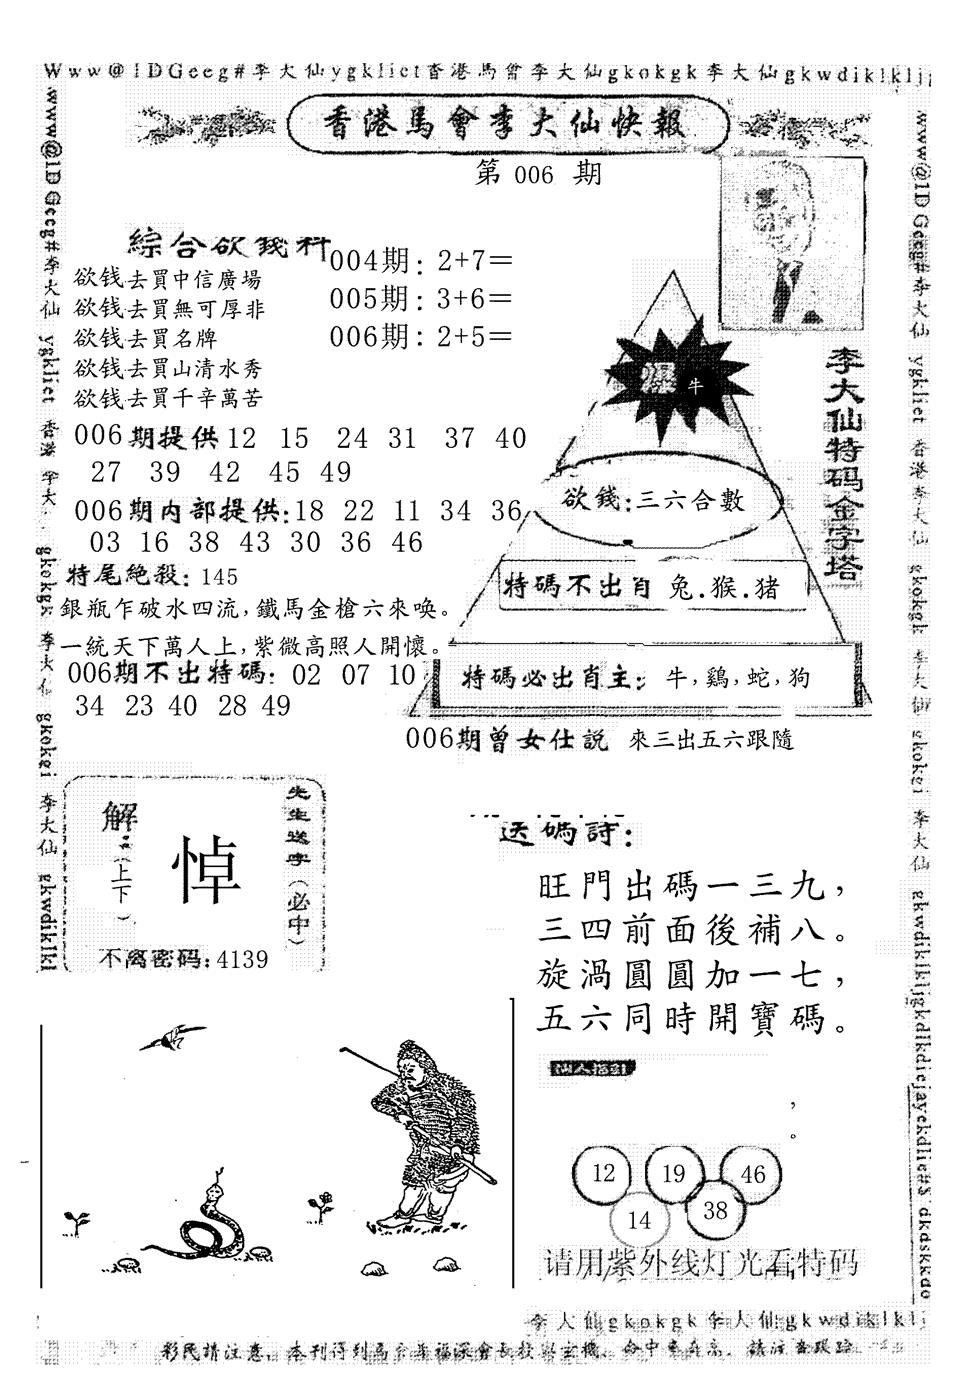 Www@1DGeeg#李大仙ygklict香港馬會李大仙gkokgk李大仙gkwdiklklj
香港馬會李大仙快報
第 006 期
綜合欲錢料
欲钱去買中信廣場
欲钱去買無可厚非
欲钱去買名牌
欲钱去買山清水秀
欲钱去買千辛萬苦
004期: 2+7=
005期: 3+6=
006期: 2+5=
006期提供 12 15 24 31 37 40
27 39 42 45 49
006期内部提供:18 22 11 34 36
03 16 38 43 30 36 46
特尾絶殺: 145
銀瓶乍破水四流,鐵馬金槍六來唤。
一統天下萬人上,紫微高照人開懷。
006期不出特碼: 02 07 10
34 23 40 28 49
李大仙特码金字塔
爆 牛
欲錢:三六合數
特碼不出肖 兔.猴.猪
特碼必出肖主: 牛,鷄,蛇,狗
006期曾女仕説 來三出五六跟隨
解:(上下)
悼
先生送字(必中)
不离密码:4139
送碼詩:
旺門出碼一三九,
三四前面後補八。
旋渦圓圓加一七,
五六同時開寶碼。
仙人指引
,
。
12 19 46
14 38
请用紫外线灯光看特码
www@1DGeeg#李大仙 ygklict 香港 李大 gkokgk 李大仙 gkokei 李大仙 gkwdiklkl
李大仙gkokgk李大仙gkwdiklklj